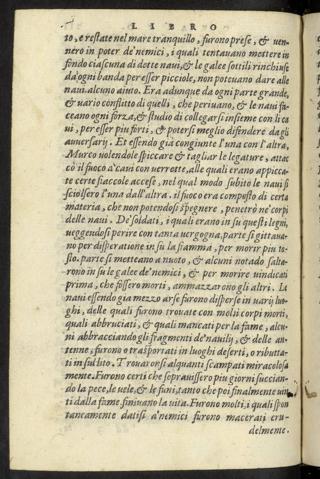 LIBRO
to, e restate nel mare tranquillo, furono prese, & ven-
nero in poter de'nemici, i quali tentauano mettere in
fondo ciascuna di dette naui, & le galee sottili rinchiuse
da ogni banda per esser picciole, non poteuano dare alle
naui alcuno aiuto. Era adunque da ogni parte grande,
& uario conflitto di quelli, che periuano, & le naui fa-
ceano ogni forza, & studio di collegarsi insieme con li ca
ui, per esser piu forti, & potersi meglio difendere da gli
auuersarij. Et essendo già congiunte l'una con l'altra,
Murco uolendole spiccare & tagliar le legature, attac
cò il fuoco a'cani con uerrotte, alle quali erano appicca-
te certe fiaccole accese, nel qual modo subito le naui si
sciolsero l'una dall'altra. il fuoco era composto di certa
materia, che non potendosi spegnere, penetrò ne'corpi
delle naui. De'soldati, i quali erano in su questi legni,
ueggendosi perire con tanta uergogna, parte si gittaua-
no per disperatione in su la fiamma, per morir piu to-
sto. parte si metteano a nuoto, & alcuni notado salta-
rono in su le galee de'nemici, & per morire uindicati
prima, che fossero morti, ammazzarono gli altri. Le
naui essendo gia mezzo arse furono disperse in uarij luo-
ghi, delle quali furono trouate con molti corpi morti,
quali abbruciati, & quali mancati per la fame, alcu-
ni abbracciando gli fragmenti de'nauilij, & delle an-
tenne, furono o trasportati in luoghi deserti, o ributta-
ti in sul lito. Trouaronsi alquanti scampati miracolosa
mente. Furono certi che soprauissero piu giorni succian-
do la pece, le uele, & le funi, tanto che poi finalmente uin
ti dalla fame, finiuano la uita. Furono molti, i quali spon
taneamente datisi a'nemici furono macerati cru-
delmente.